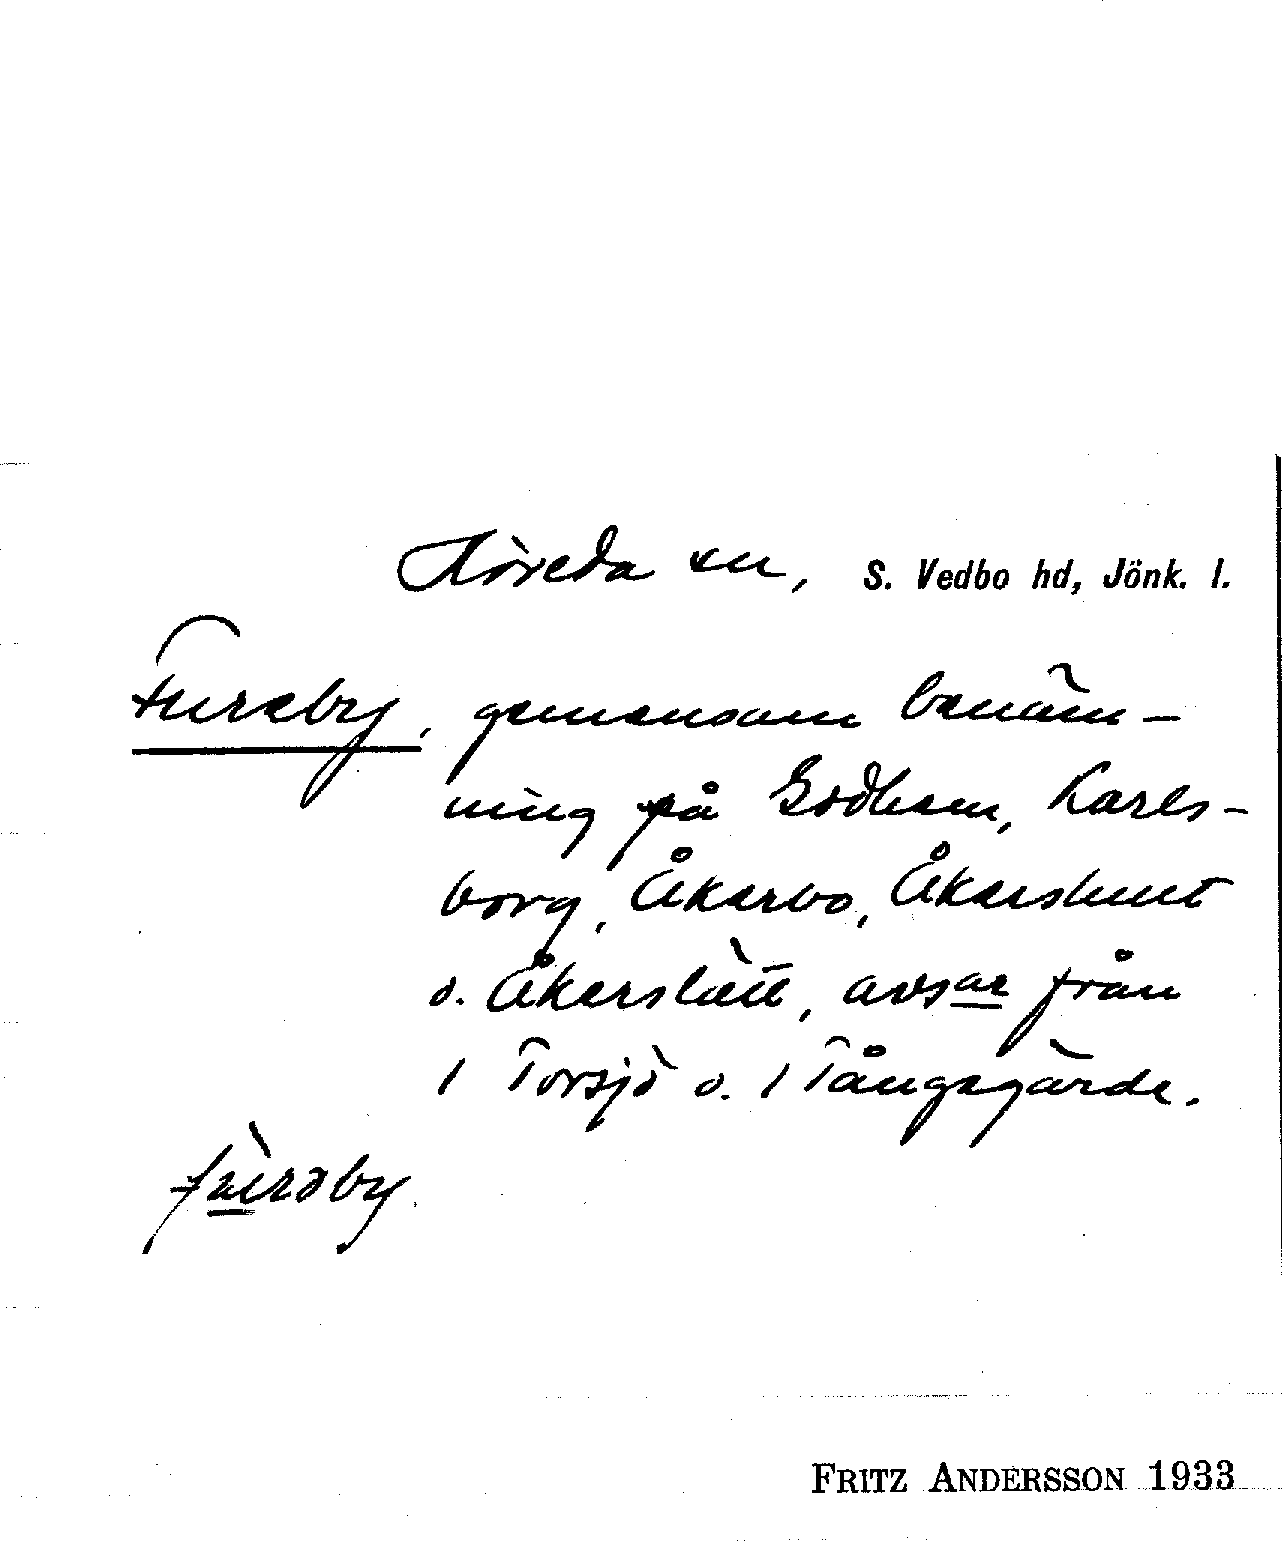 Höreda sn, S. Vedbo hd, Jönk. l.
Fureby, gemensam benäm-
ning på Godhem, Karls-
borg, Åkerbo, Åkerslund
o. Åkerslätt, avsar från
1 Torsjö o. 1 Tångagärde.
furəby.
FRITZ ANDERSSON 1933